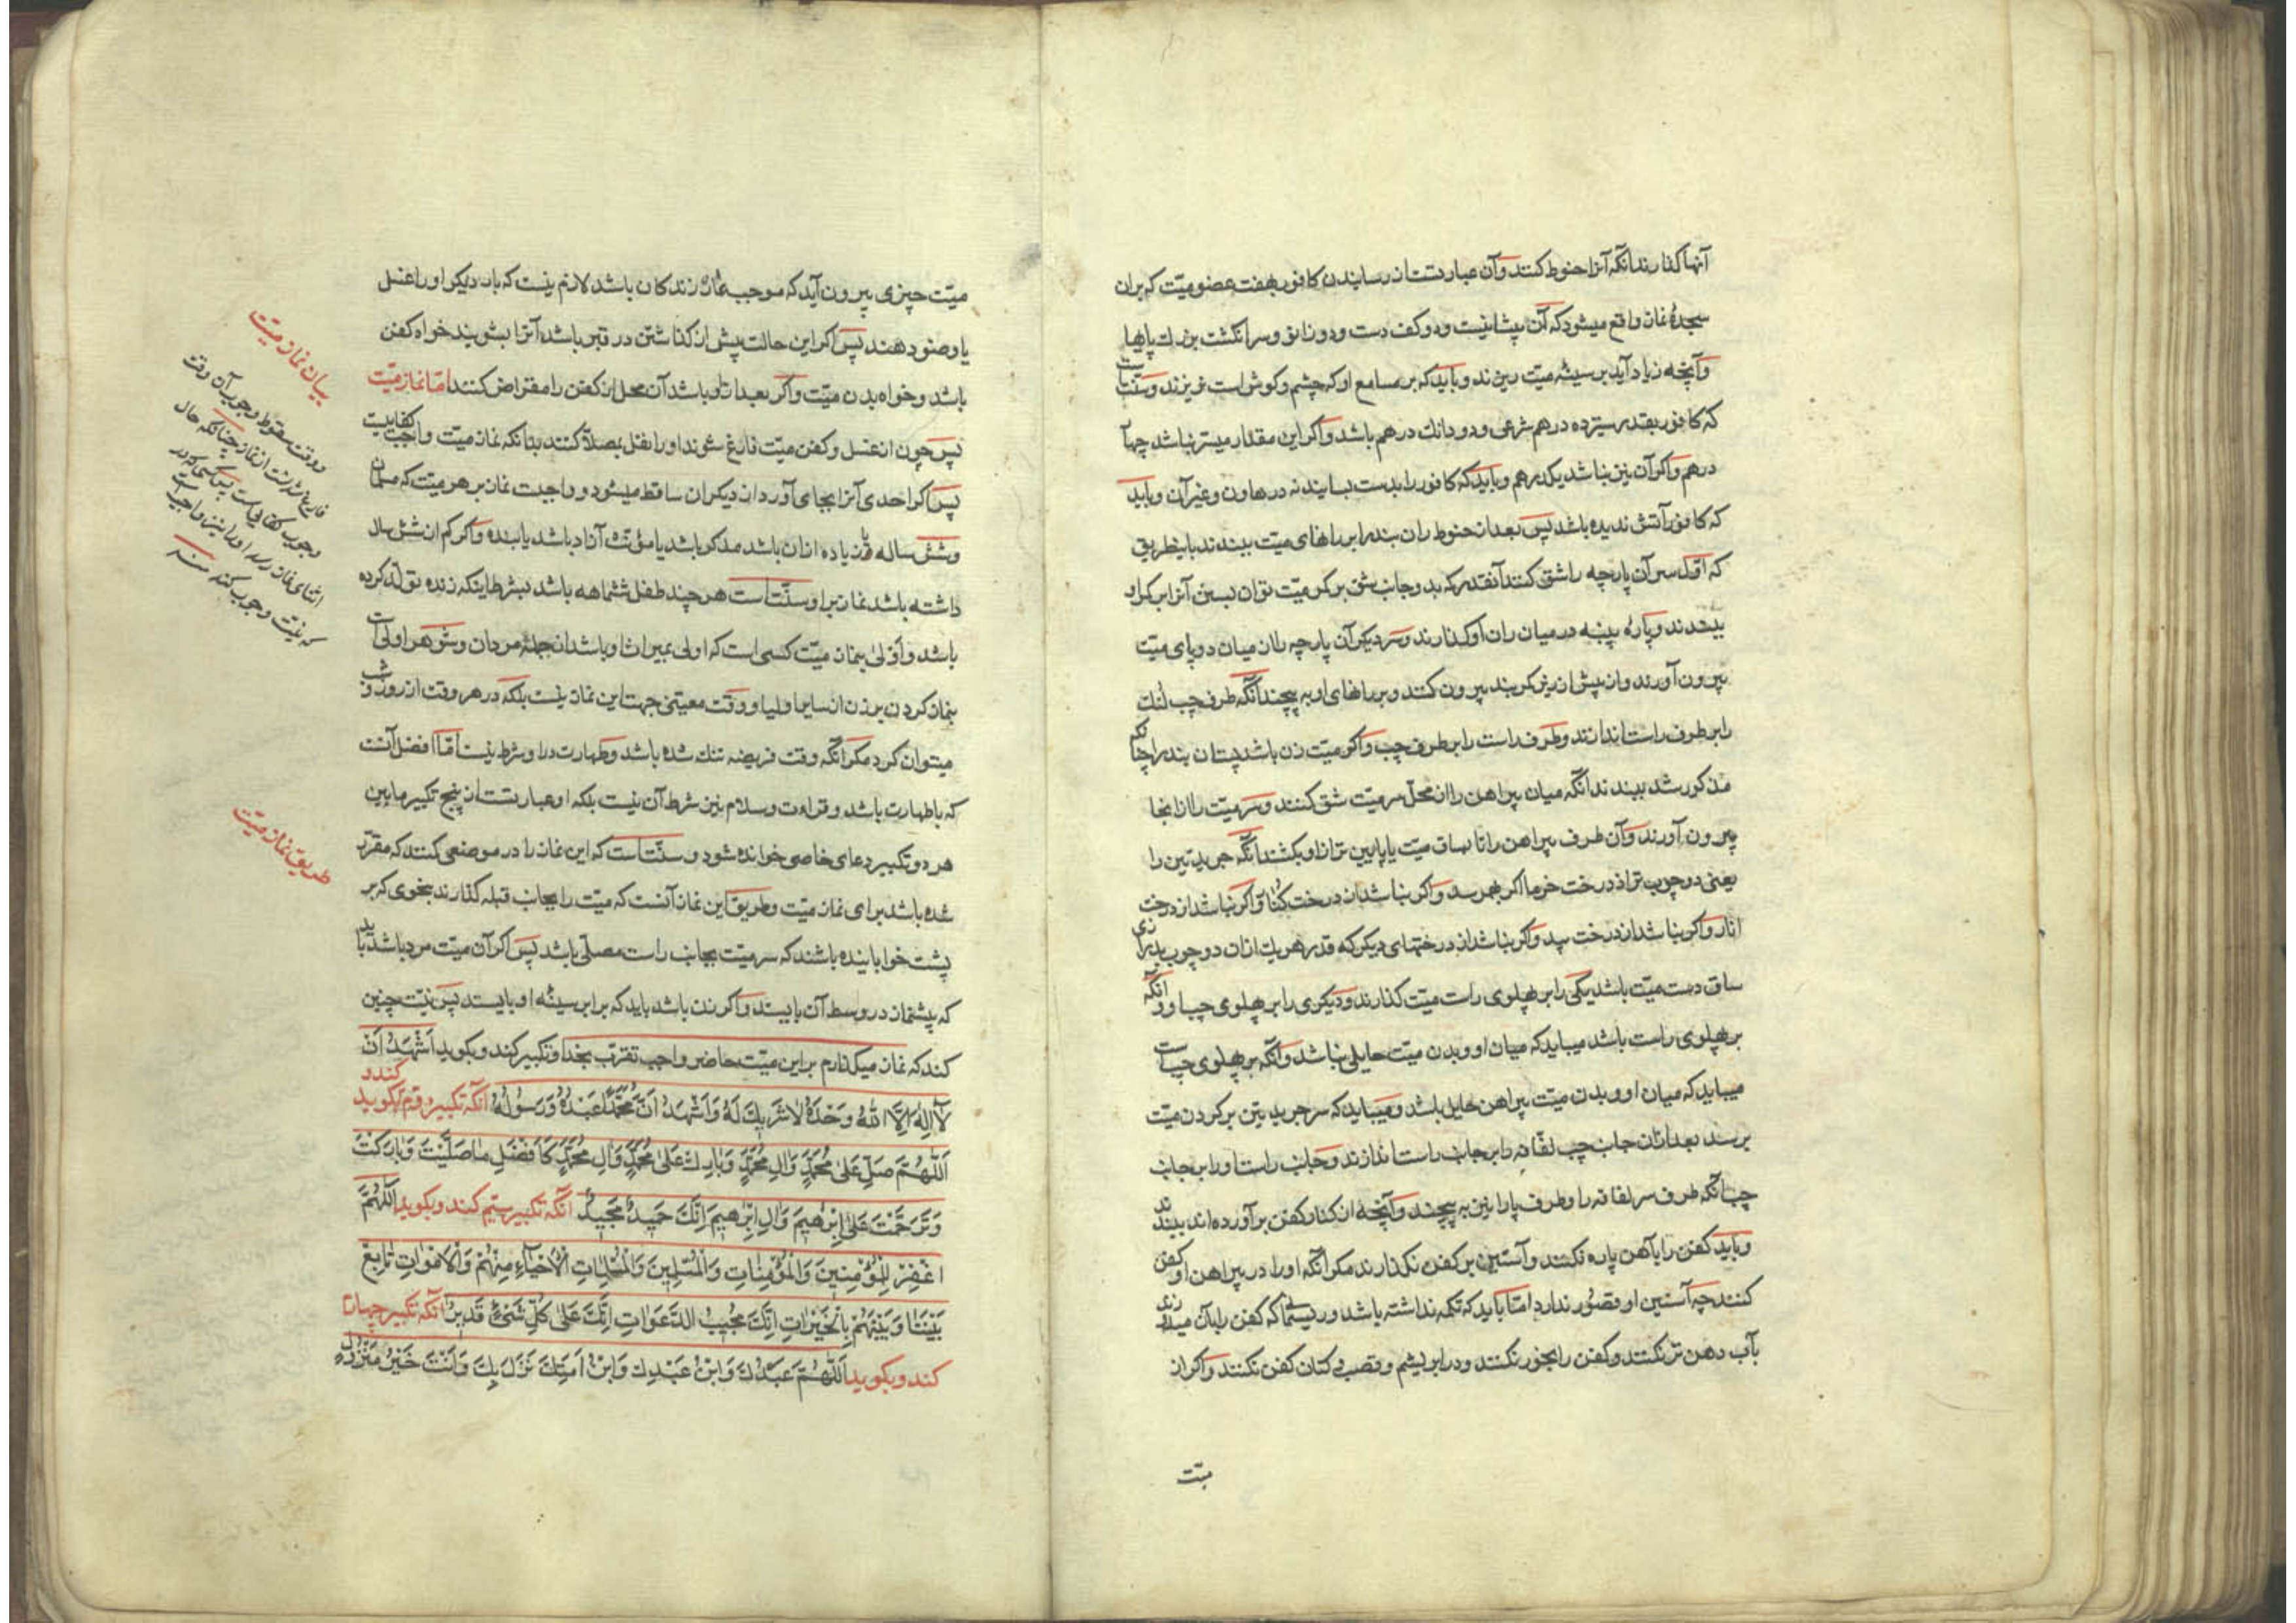 آنها گذارند آنگه آنرا حنوط کنند وآن عبارتست از رسانیدن کافور بهفت عضو میت که بران
سجدهٔ نماز واقع میشود که آن پیشانیست ودو کف دست ودو زانو وسر انگشت بزرك پاها
وآنچه زیاد آید بر سینهٔ میت ریزند وباید که بر مسامع او که چشم وکوش است نریزند وسنت است
که کافور بقدر سیزده درهم شرعی ودو دانك درهم باشد واکر این مقدار میسر نباشد چهار
درهم واکر آن نیز نباشد یکدرهم وباید که کافور را بدست بسایند نه در هاون وغیر آن وباید
که کافور آتش ندیده باشد پس بعد از حنوط ران بند را بر رانهای میت ببندند باینطریق
که اول سر آن پارچه را شق کنند آنقدر که بدو جانب شق بر کمر میت توان بستن آنرا بر کمر او
ببندند وپارهٔ پنبه در میان ران او کذارند وسر دیکر آن پارچه را از میان دو پای میت
بیرون آورند واز پیش از زیر کمر بند بیرون کنند وبر رانهای او به پیچند آنگه طرف چپ لنك
را بر طرف راست اندازند وطرف راست را بر طرف چپ واکر میت زن باشد پستان بند را چنانکه
مذکور شد ببندند آنگه میان پیراهن را از محل سر میت شق کنند وسر میت را از انجا
بیرون آورند وآن طرف پیراهن را تا بساق میت یا پایین تر ازاو بکشند آنگه جریدتین را
یعنی دو چوب تر از درخت خرما اکر بهم رسد واکر نباشد از درخت کُنار واکر نباشد از درخت
انار واکر نباشد از درخت بید واکر نباشد از درختهای دیکر که قدر هر یك ازان دو چوب برابر
ساق دست میت باشد یکی را بر پهلوی راست میت کذارند ودیکری را بر پهلوی چپ او وآنگه
بر پهلوی راست باشد میباید که میان او وبدن میت حایلی نباشد وآنگه بر پهلوی چپ است
میباید که میان او وبدن میت پیراهن حایل باشد ومیباید که سر جریدتین بر کردن میت
برسد بعد ازان جانب چپ لفافه را بر جانب راست اندازند وجانب راست او را بر جانب
چپ آنگه طرف سر لفافه را وطرف پا را نیز به پیچند وآنچه از کنار کفن برآورده اند ببندند
وباید کفن را بآهن پاره نکنند وآستین بر کفن نکذارند مکر آنگه او را در پیراهن او کفن
کنند چه آستین او قصور ندارد اما باید که تکمه نداشته باشد وریسمانی که کفن را بآن میدوزند
بآب دهن تر نکنند وکفن را بخور نکنند ودر ابریشم وقصب وکتان کفن نکنند واکر از
میت
میت چیزی بیرون آید که موجب غسل زندکان باشد لازم نیست که بار دیکر او را غسل
یا وضو دهند پس اکر این حالت پیش از کذاشتن در قبر باشد آنرا بشویند خواه کفن
باشد وخواه بدن میت واکر بعد ازاو باشد آن محل از کفن را مقراض کنند اما نماز میت
پس چون از غسل وکفن میت فارغ شوند او را نقل بمصلا کنند بدانکه نماز میت واجب کفاییست
پس اکر احدی آنرا بجای آورد از دیکران ساقط میشود وواجبست نماز بر هر میت که مسلمان
وشش ساله یا زیاده ازان باشد مذکر باشد یا مؤنث آزاد باشد یا بنده واکر کم از شش سال
داشته باشد نماز بر او سنت است هر چند طفل ششماهه باشد بشرط اینکه زنده تولد کرده
باشد واولی بنماز میت کسی است که اولی بمیراث او باشد از جملهٔ مردان وشوهر اولی است
بنماز کردن بر زن از سایر اولیا ووقت معینی جهت این نماز نیست بلکه در هر وقت از روز وشب
میتوان کرد مکر آنگه وقت فریضه تنك شده باشد وطهارت در او شرط نیست اما افضل آنست
که باطهارت باشد وقراءت وسلام نیز شرط آن نیست بلکه او عبارتست از پنج تکبیر مابین
هر دو تکبیر دعای خاصی خوانده شود وسنت است که این نماز را در موضعی کنند که مقرر
شده باشد برای نماز میت وطریق این نماز آنست که میت را بجانب قبله کذارند بنحوی که بر
پشت خوابانیده باشند که سر میت بجانب راست مصلی باشد پس اکر آن میت مرد باشد باید
که پیشنماز در وسط آن بایستد واکر زن باشد باید که برابر سینهٔ او بایستد پس نیت چنین
کند که نماز میکذارم بر این میت حاضر واجب تقرب بخدا وتکبیر کند وبکوید اَشْهَدُ اَنْ
لا اِلٰهَ اِلَّا اللّٰهُ وَحْدَهُ لا شَرِیكَ لَهُ وَاَشْهَدُ اَنَّ مُحَمَّدًا عَبْدُهُ وَرَسُولُهُ آنگه تکبیر دوم کند وبکوید
اَللّٰهُمَّ صَلِّ عَلیٰ مُحَمَّدٍ وَآلِ مُحَمَّدٍ وَبارِكْ عَلیٰ مُحَمَّدٍ وَآلِ مُحَمَّدٍ کَاَفْضَلِ ما صَلَّیْتَ وَبارَکْتَ
وَتَرَحَّمْتَ عَلیٰ اِبْرٰهیمَ وَآلِ اِبْرٰهیمَ اِنَّكَ حَمیدٌ مَجیدٌ آنگه تکبیر سیم کند وبکوید اَللّٰهُمَّ
اغْفِرْ لِلْمُؤْمِنینَ وَالْمُؤْمِناتِ وَالْمُسْلِمینَ وَالْمُسْلِماتِ اَلْاَحْیاءِ مِنْهُمْ وَالْاَمْواتِ تابِعْ
بَیْنَنا وَبَیْنَهُمْ بِالْخَیْراتِ اِنَّكَ مُجیبُ الدَّعَواتِ اِنَّكَ عَلیٰ کُلِّ شَیْءٍ قَدیرٌ آنگه تکبیر چهارم
کند وبکوید اَللّٰهُمَّ عَبْدُكَ وَابْنُ عَبْدِكَ وَابْنُ اَمَتِكَ نَزَلَ بِكَ وَاَنْتَ خَیْرُ مَنْزُولٍ
بیان نماز میت
ووقت سقوط وجوب آن وقت
فارغ شدنست از نماز چنانکه حال
وجوب کفایی است پس کسی که در
اثنای نماز رسد او را نیز واجبست
که نیت وجوب کند منه
طریق نماز میت